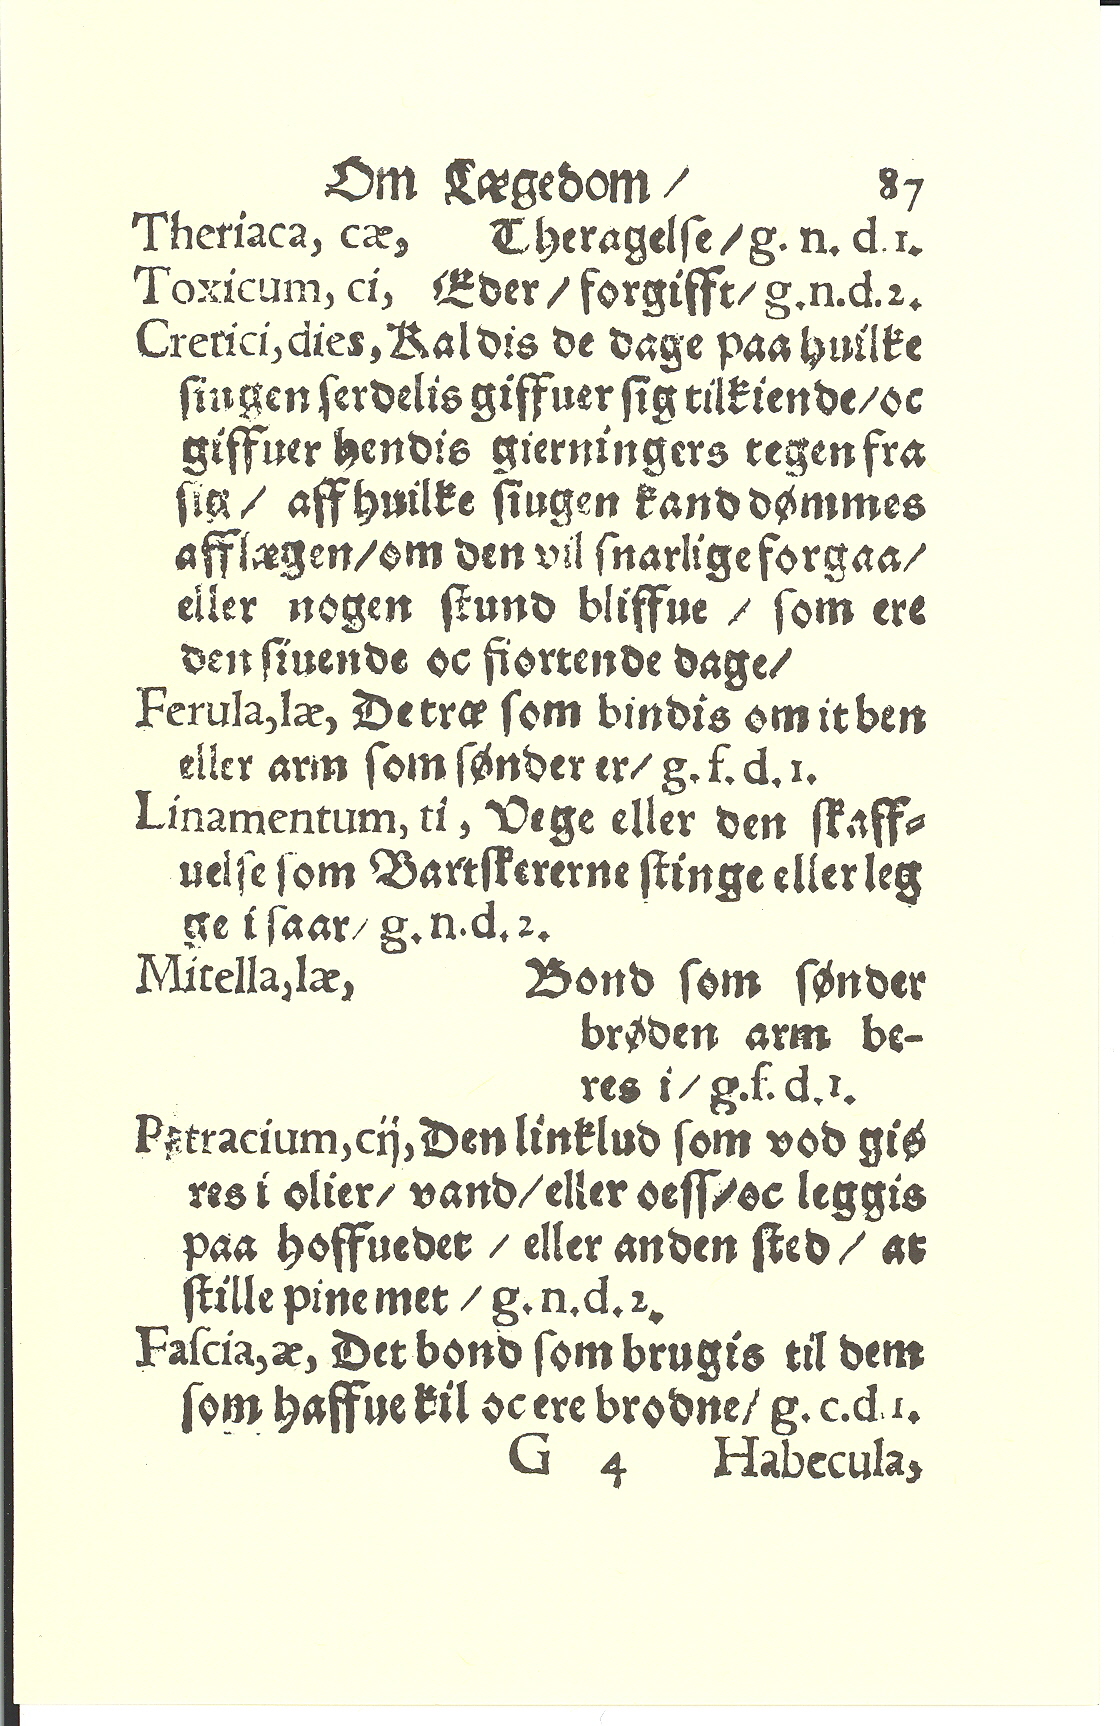 Om Lægedom / 87
Theriaca, cæ, Theragelſe / g. n. d. 1.
Toxicum, ci, Eder / forgifft / g. n. d. 2.
Cretici, dies, Kaldis de dage paa huilke
ſiugen ſerdelis giffuer ſig tilkiende / oc
giffuer hendis gierningers tegen fra
ſig / aff huilke ſiugen kand dømmes
aff lægen / om den vil ſnarlige forgaa /
eller nogen ſtund bliffue / ſom ere
den ſiuende oc fiortende dage /
Ferula, læ, De træ ſom bindis om it ben
eller arm ſom ſønder er / g. f. d. 1.
Linamentum, ti, Vege eller den ſkaff-
uelſe ſom Bartſkererne ſtinge eller leg
ge i ſaar / g. n. d. 2.
Mitella, læ, Bond ſom ſønder
brøden arm be-
res i / g. f. d. 1.
Petracium, cij, Den linklud ſom vod giø
res i olier / vand / eller oeſſ / oc leggis
paa hoffuedet / eller anden ſted / at
ſtille pine met / g. n. d. 2.
Faſcia, æ, Det bond ſom brugis til dem
ſom haffue kil oc ere brodne / g. c. d. 1.
G 4 Habecula,